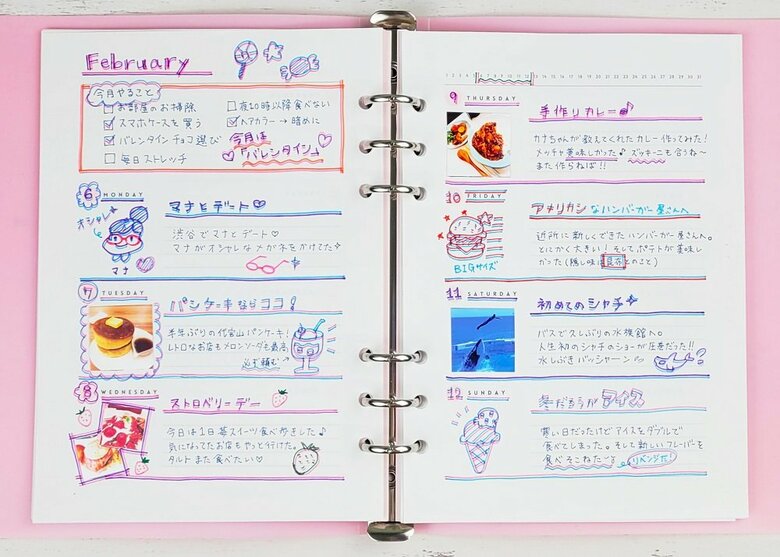 February
今月やること
□お部屋のお掃除
☑スマホケースを買う
☑バレンタインチョコ選び
□毎日ストレッチ
□夜10時以降食べない
☑ヘアカラー→暗めに
今月は
「バレンタイン」
6 MONDAY
オシャレ
マナ
マナとデート♡
渋谷でマナとデート。
マナがオシャレなメガネをかけてた
7 TUESDAY
パンケーキならココ!
半年ぶりの代官山パンケーキ!
レトロなお店もメロンソーダも最高
必ず頼む
8 WEDNESDAY
ストロベリーデー
今日は1日苺スイーツ食べ歩きした♪
気になってたお店もやっと行けた。
タルトまた食べたい♡
9 THURSDAY
手作りカレー♪
カナちゃんが教えてくれたカレー作ってみた!
メッチャ美味しかった♪ ズッキーニも合うね〜
また作らねば!!
10 FRIDAY
BIGサイズ
アメリカンなハンバーガー屋さんへ
近所に新しくできたハンバーガー屋さん。
とにかく大きい!そしてポテトが美味し
かった(隠し味は昆布とのこと)
11 SATURDAY
初めてのシャチ
バスで久しぶりの水族館へ。
人生初のシャチのショーが圧巻だった!!
水しぶきバッシャーン
12 SUNDAY
冬だろうがアイス
寒い日だったけどアイスをダブルで
食べてしまった。そして新しいフレーバーを
食べそこねたいる
リベンジだ!